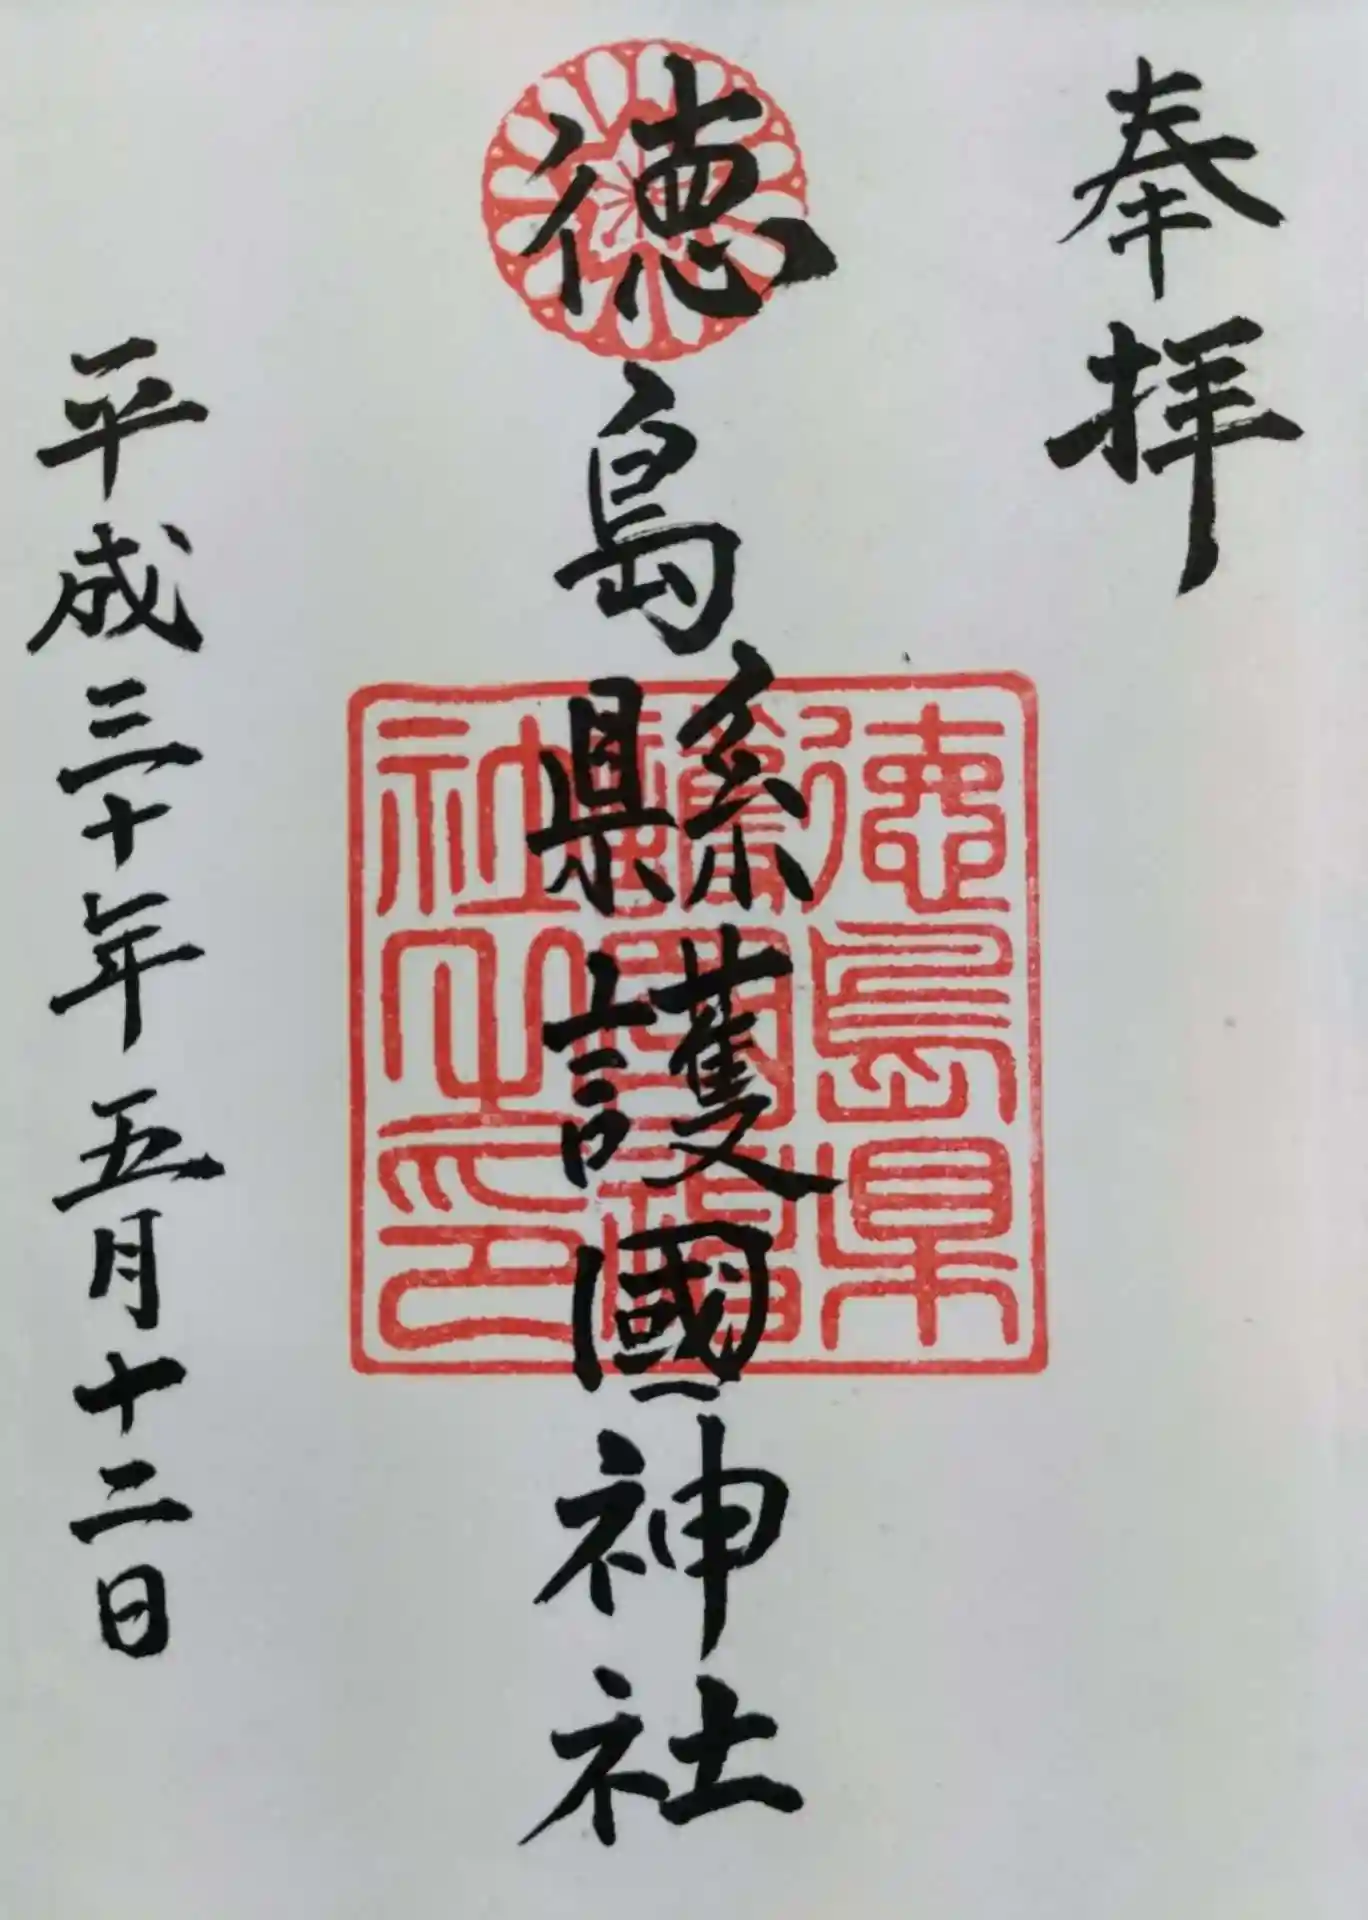 奉拝
徳島縣護國神社
徳島県護国神社之印
平成三十年五月十二日